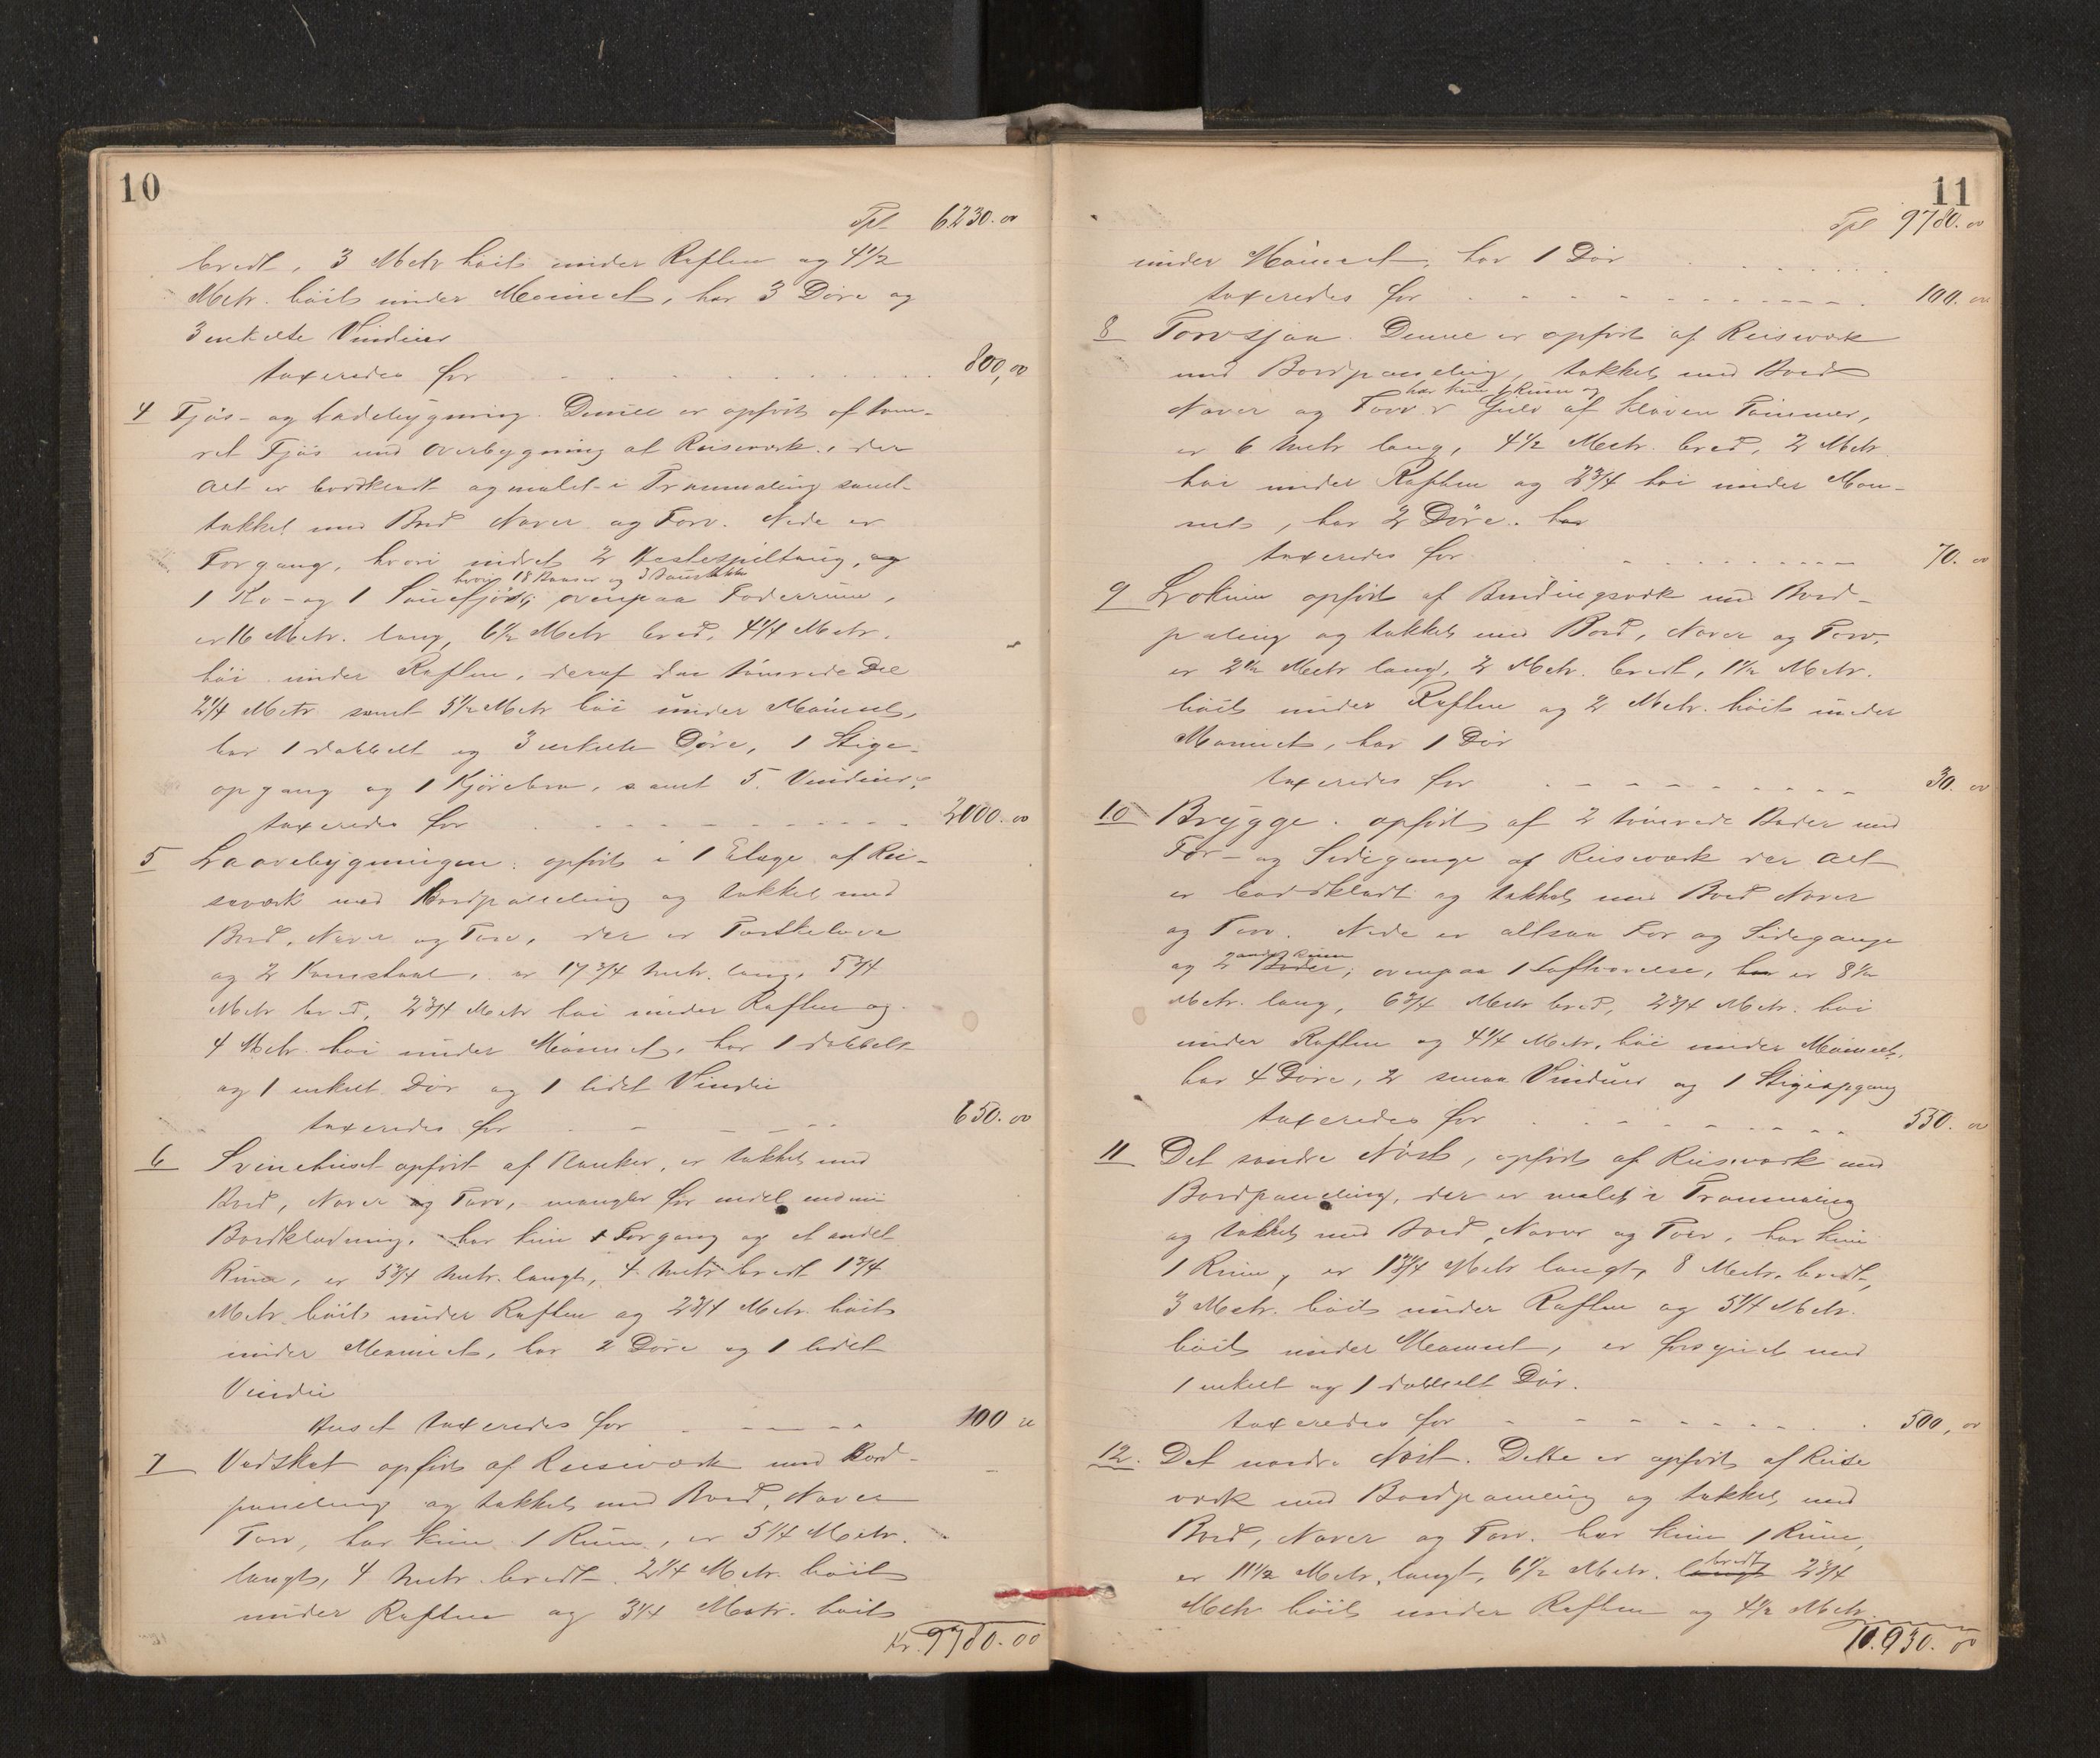 10
Tpt 6230.00
bredt, 3 Metr höit under Raften og 4 1/2
Metr. höit under Mönnet, har 3 Döre og
3 enkelte Vinduer
taxeredes for 800,00
4 Fjös- og Ladebygning. Denne er opfört af töm-
ret Fjös med Overbygning af Reisværk, der
alt er bordklædt og malet i Tranmaling samt
tækket med Bord Næver og Torv. Nede er
Forgang, hvori indret 2 Hestespiltaug, og
hvori 18 Baaser og 3
1 Ko- og 1 Sauefjös; ovenpaa Foderrum,
er 16 Metr. lang, 6 1/2 Metr bred, 4 1/4 Metr.
höi under Raften, deraf den tömrede Del
2 1/4 Metr samt 5 1/2 Metr höi under Mönnet,
har 1 dobbelt og 3 enkelte Döre, 1 Stige-
opgang og 1 Kjörebro, samt 5 Vinduer,
taxeredes for 2000.00
5 Laavebygningen: opfört i 1 Etage af Rei-
seværk med Bordpaneling og tækket med
Bord, Næver og Torv, der er Tærskelove
og 2 Kornstaal, er 17 3/4 Metr. lang, 5 3/4
Metr bred, 2 3/4 Metr höi under Raften og
4 Metr. höi under Mönnet, har 1 dobbelt
og 1 enkelt Dör og 1 lidet Vindu
taxeredes for 650.00
6 Svinehuset opfört af Planker, er tækket med
Bord, Næver og Torv, mangler for endel endnu
Bordklædning, har kun 1 Forgang og et andet
Rum, er 5 3/4 Metr. langt, 4 Metr bredt 1 3/4
Metr höit under Raften og 2 3/4 Metr. höit
under Mönnet, har 2 Döre og 1 lidet
Vindu
Huset taxeredes for 100 00
7 Vedskot opfört af Reiseværk med Bord-
paneling og tækket med Bord, Næver
Torv, har kun 1 Rum, er 5 1/4 Metr.
langt, 4 Metr bredt 2 1/4 Metr. höit
under Raften og 3 1/4 Metr. höit
Kr. 9780.00
11
Tpt 9780.00
under Mönnet, har 1 Dör
taxeredes for 100.00
8 Torvsjaa. Denne er opfört af Reisværk
med Bordpaneling, tækket med Bord
har kun 1 Rum og
Næver og Torv Gulv af kløven Tömmer,
er 6 Metr lang, 4 1/2 Metr. bred, 2 Metr.
höi under Raften og 2 3/4 höi under Mön-
net, har 2 Döre. har
taxeredes for 70.00
9 Lokum opfört af Bindingsværk med Bord-
paling og tækket med Bord, Næver og Torv,
er 2 1/2 Metr langt, 2 Metr. bredt, 1 1/2 Metr.
höit under Raften og 2 Metr. höit under
Mönnet, har 1 Dör
taxeredes for 30.00
10 Brygge. opfört af 2 tömrede Boder med
For- og Sidegange af Reisværk der alt
er bordklædt og tækket med Bord Næver
og Torv. Nede er altsaa For og Sidegange
andre Rum
og 2 Boder; ovenpaa 1 Loftværelse, har er 8 1/2
Metr. lang, 6 3/4 Metr bred, 2 3/4 Metr. höi
under Raften og 4 1/4 Metr. höi under Mönnet,
har 4 Döre, 2 smaa Vinduer og 1 Stigeopgang
taxeredes for 550.00
11 Det söndre Nöst, opfört af Reisværk med
Bordpaneling, der er malet i Tranmaling
og tækket med Bord, Næver og Torv, har kun
1 Rum, er 13 3/4 Metr langt, 8 Metr. bredt,
3 Metr. höit under Raften og 5 1/4 Metr.
höit under Mönnet, er forsynet med
1 enkelt og 1 dobbelt Dör.
taxeredes for 500,00
12. Det nordre Nöst. Dette er opfört af Reise
værk med Bordpaneling og tækket med
Bord, Næver og Torv. har kun 1 Rum,
bredt
er 11 1/2 Metr. langt, 6 1/2 Metr. langt 2 3/4
Metr höit under Raften og 4 1/2 Metr.
10.930.00